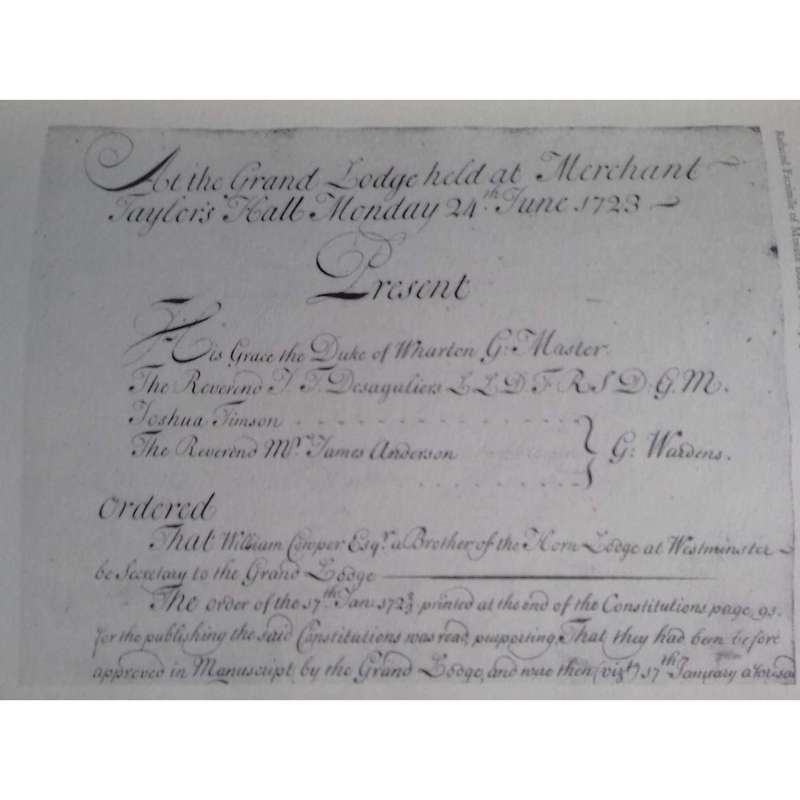 At the Grand Lodge held at Merchant
Taylor's Hall Monday 24th June 1723
Present
His Grace the Duke of Wharton G: Master.
The Reverend J. T. Desaguliers L L D. F. R S D. G. M.
Joshua Timson
The Reverend Mr. James Anderson } G: Wardens.
Ordered
That William Cowper Esqr. a Brother of the Horn Lodge at Westminster
be Secretary to the Grand Lodge
The order of the 17th Jan: 1723 printed at the end of the Constitutions page 91.
for the publishing the said Constitutions was read, purporting, That they had been before
approved in Manuscript by the Grand Lodge, and were then (vizt) 17th January aforesaid
Reduced Facsimile of